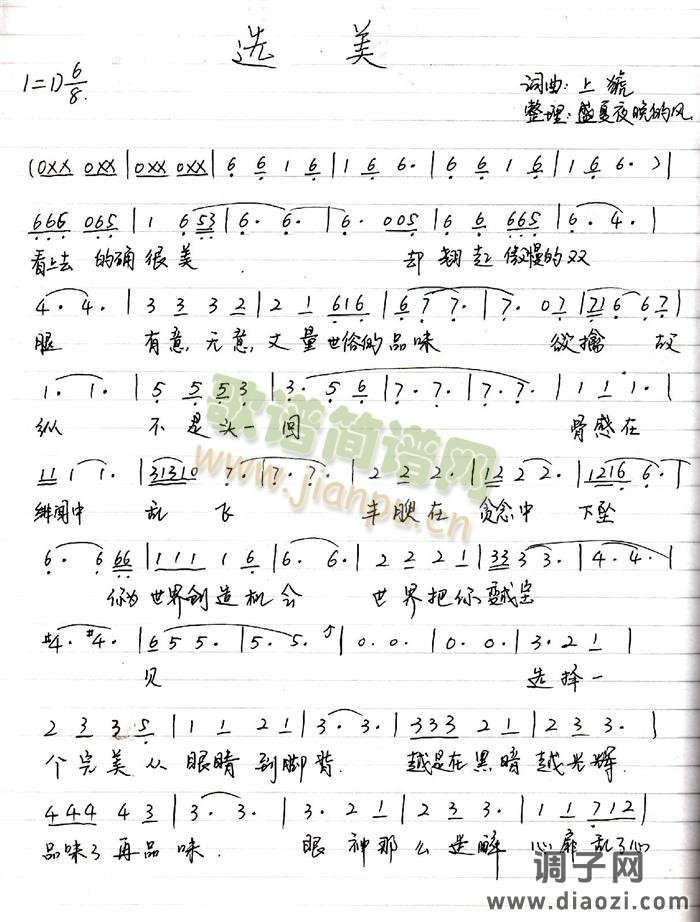 选 美
1=D 6/8
词曲:上
整理:盛夏夜晚的风
(0XX 0XX|0XX 0XX|6 6 1 6|1 6 6·|6 6 1 6|1 6 6·)|
666 065|1 6 53|6· 6·|6· 005|6 6 665|6· 4·|
看上去 的确很美 却翘起傲慢的双
4· 4·|3 3 3 2|2 1 616|6 7 7·|7· 07|71 6 67|
腿 有意,无意,丈量世俗的品味 欲擒 故
1· 1·|5 5 5 3|3· 5 6|7· 7·|7· 7·|1 1 1·|
纵 不是头一回 骨感在
11 1 1·|31310 7·|7· 7·|2 2 2·|12 2 2·|1216 6·|
绯闻中 乱 飞 丰腴在 贪念中 下坠
6· 6 66|111 1 6|6· 6·|2 2 2 1|333 3 3·|4· 4·|
你为世界创造机会 世界把你变成宝
#4· #4·|6 5 5·|5· 5·|0· 0·|0· 0·|3· 2 1|
贝 选择一
2 3 3 5|1 1 2 1|3· 3·|333 2 1|2 3 3·|
个完美从眼睛到脚背 越是在黑暗越光辉
444 4 3|3· 3·|3· 2 1|2 3 3·|1 1 712|
品味了再品味. 眼神那么迷醉 心扉乱了心
歌谱简谱网
www.jianpu.cn
调子网
www.diaozi.com